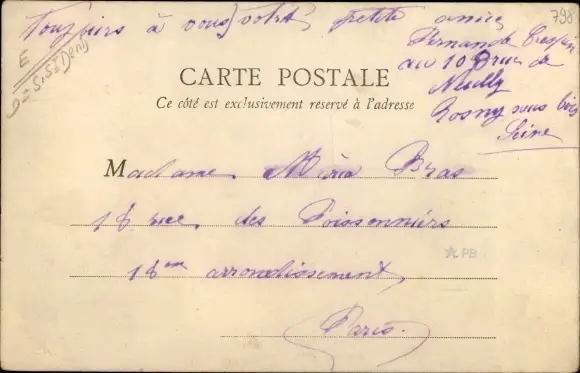 Toujours à vous votre petite amie
Fernande Crespin
au 109 rue de
Neuilly
Rosny sous bois
Seine
798
E
S. St Denis
CARTE POSTALE
Ce côté est exclusivement reservé à l'adresse
Madame Bras
18 rue des Poissonniers
18me arrondissement
PB
Paris.